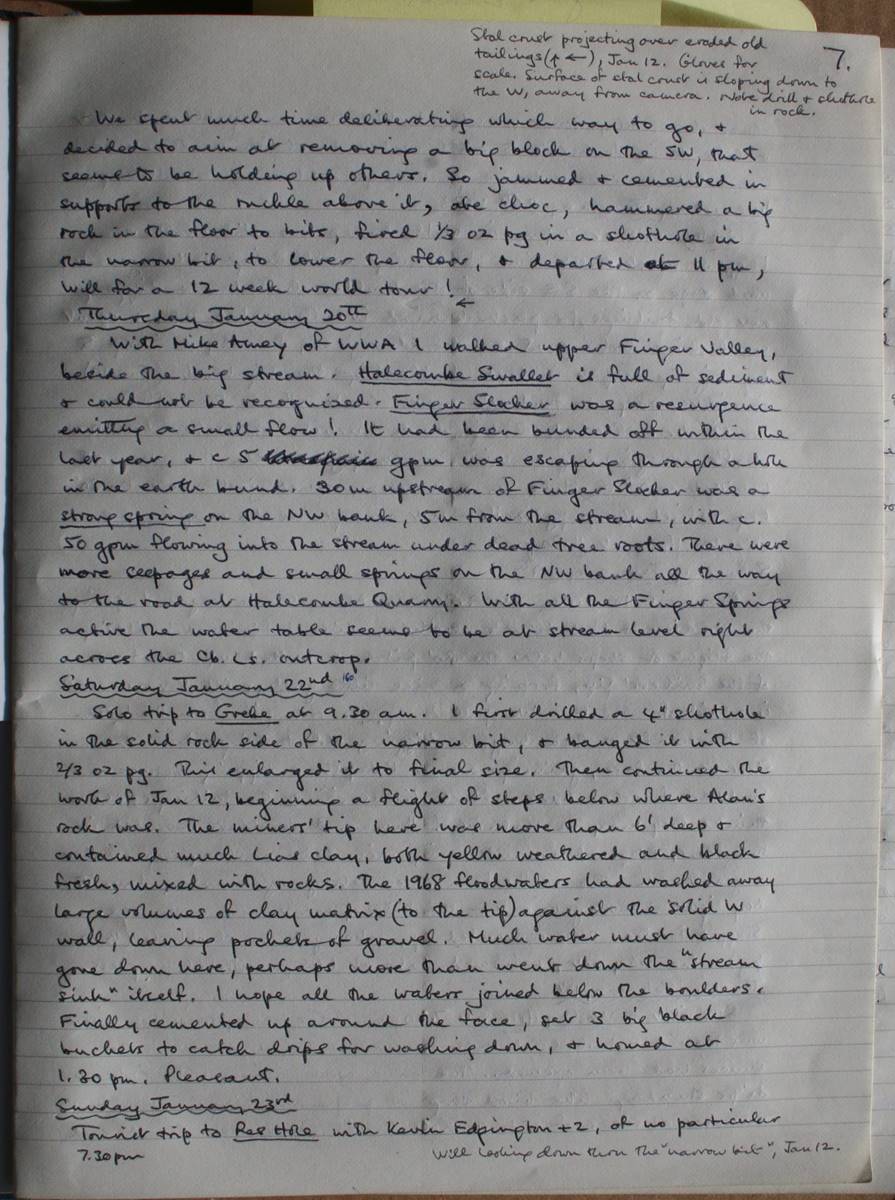 Stal crust projecting over eroded old
tailings (↑ ←), Jan 12. Gloves for
scale. Surface of stal crust is sloping down to
the W, away from camera. Note drill & shothole
in rock.
7.
We spent much time deliberating which way to go, &
decided to aim at removing a big block on the SW, that
seems to be holding up others. So jammed & cemented in
supports to the ruckle above it, ate choc, hammered a big
rock in the floor to bits, fired 1/3 oz pg in a shothole in
the narrow bit, to lower the floor, & departed at 11 pm,
Will for a 12 week world tour!
←
Thursday January 20th
With Mike Amey of WWA I walked upper Finger Valley,
beside the big stream. Halecombe Swallet is full of sediment
& could not be recognized. Finger Slocker was a resurgence
emitting a small flow! It had been bunded off within the
last year, & c 5 gpm was escaping through a hole
in the earth bund. 30m upstream of Finger Slocker was a
strong spring on the NW bank, 5m from the stream, with c.
50 gpm flowing into the stream under dead tree roots. There were
more seepages and small springs on the NW bank all the way
to the road at Halecombe Quarry. With all the Finger Springs
active the water table seems to be at stream level right
across the Cb. Ls. outcrop.
Saturday January 22nd 160
Solo trip to Grebe at 9.30 am. I first drilled a 4" shothole
in the solid rock side of the narrow bit, & banged it with
2/3 oz pg. This enlarged it to final size. Then continued the
work of Jan 12, beginning a flight of steps below where Alan's
rock was. The miners' tip here was more than 6' deep &
contained much Lias clay, both yellow weathered and black
fresh, mixed with rocks. The 1968 floodwaters had washed away
large volumes of clay matrix (to the tip) against the solid W
wall, leaving pockets of gravel. Much water must have
gone down here, perhaps more than went down the "stream
sink" itself. I hope all the waters joined below the boulders.
Finally cemented up around the face, set 3 big black
buckets to catch drips for washing down, & homed at
1.30 pm. Pleasant.
Sunday January 23rd
Tourist trip to Res Hole with Kevin Edpington + 2, of no particular
7.30pm
Will looking down thru the "narrow bit", Jan 12.